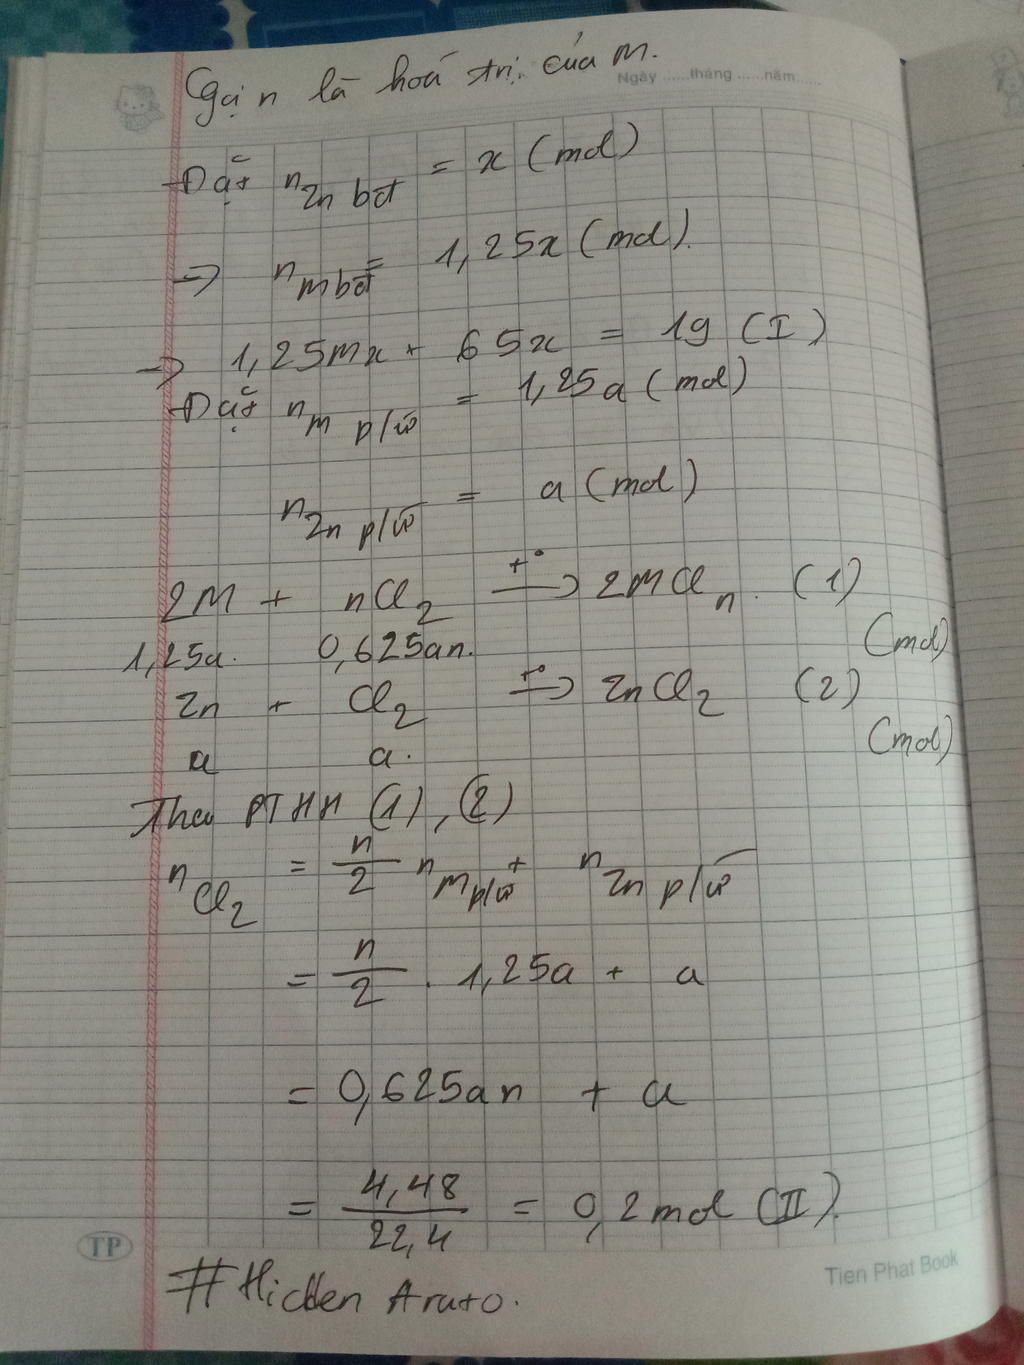 Gọi n là hoá trị của M.
Ngày ......tháng ......năm......
Đặt n Zn bđ = x (mol)
=> n M bđ = 1,25x (mol).
=> 1,25Mx + 65x = 19 (I)
Đặt n M p/ứ = 1,25a (mol)
n Zn p/ứ = a (mol)
2M + nCl2 t°→ 2MCln. (1)
1,25a. 0,625an. (mol)
Zn + Cl2 t°→ ZnCl2 (2)
a a. (mol)
Theo PTHH (1), (2)
n Cl2 = n/2 n M p/ứ + n Zn p/ứ
= n/2 . 1,25a + a
= 0,625an + a
= 4,48/22,4 = 0,2 mol (II).
TP
Tien Phat Book
#Hidden Aruto.